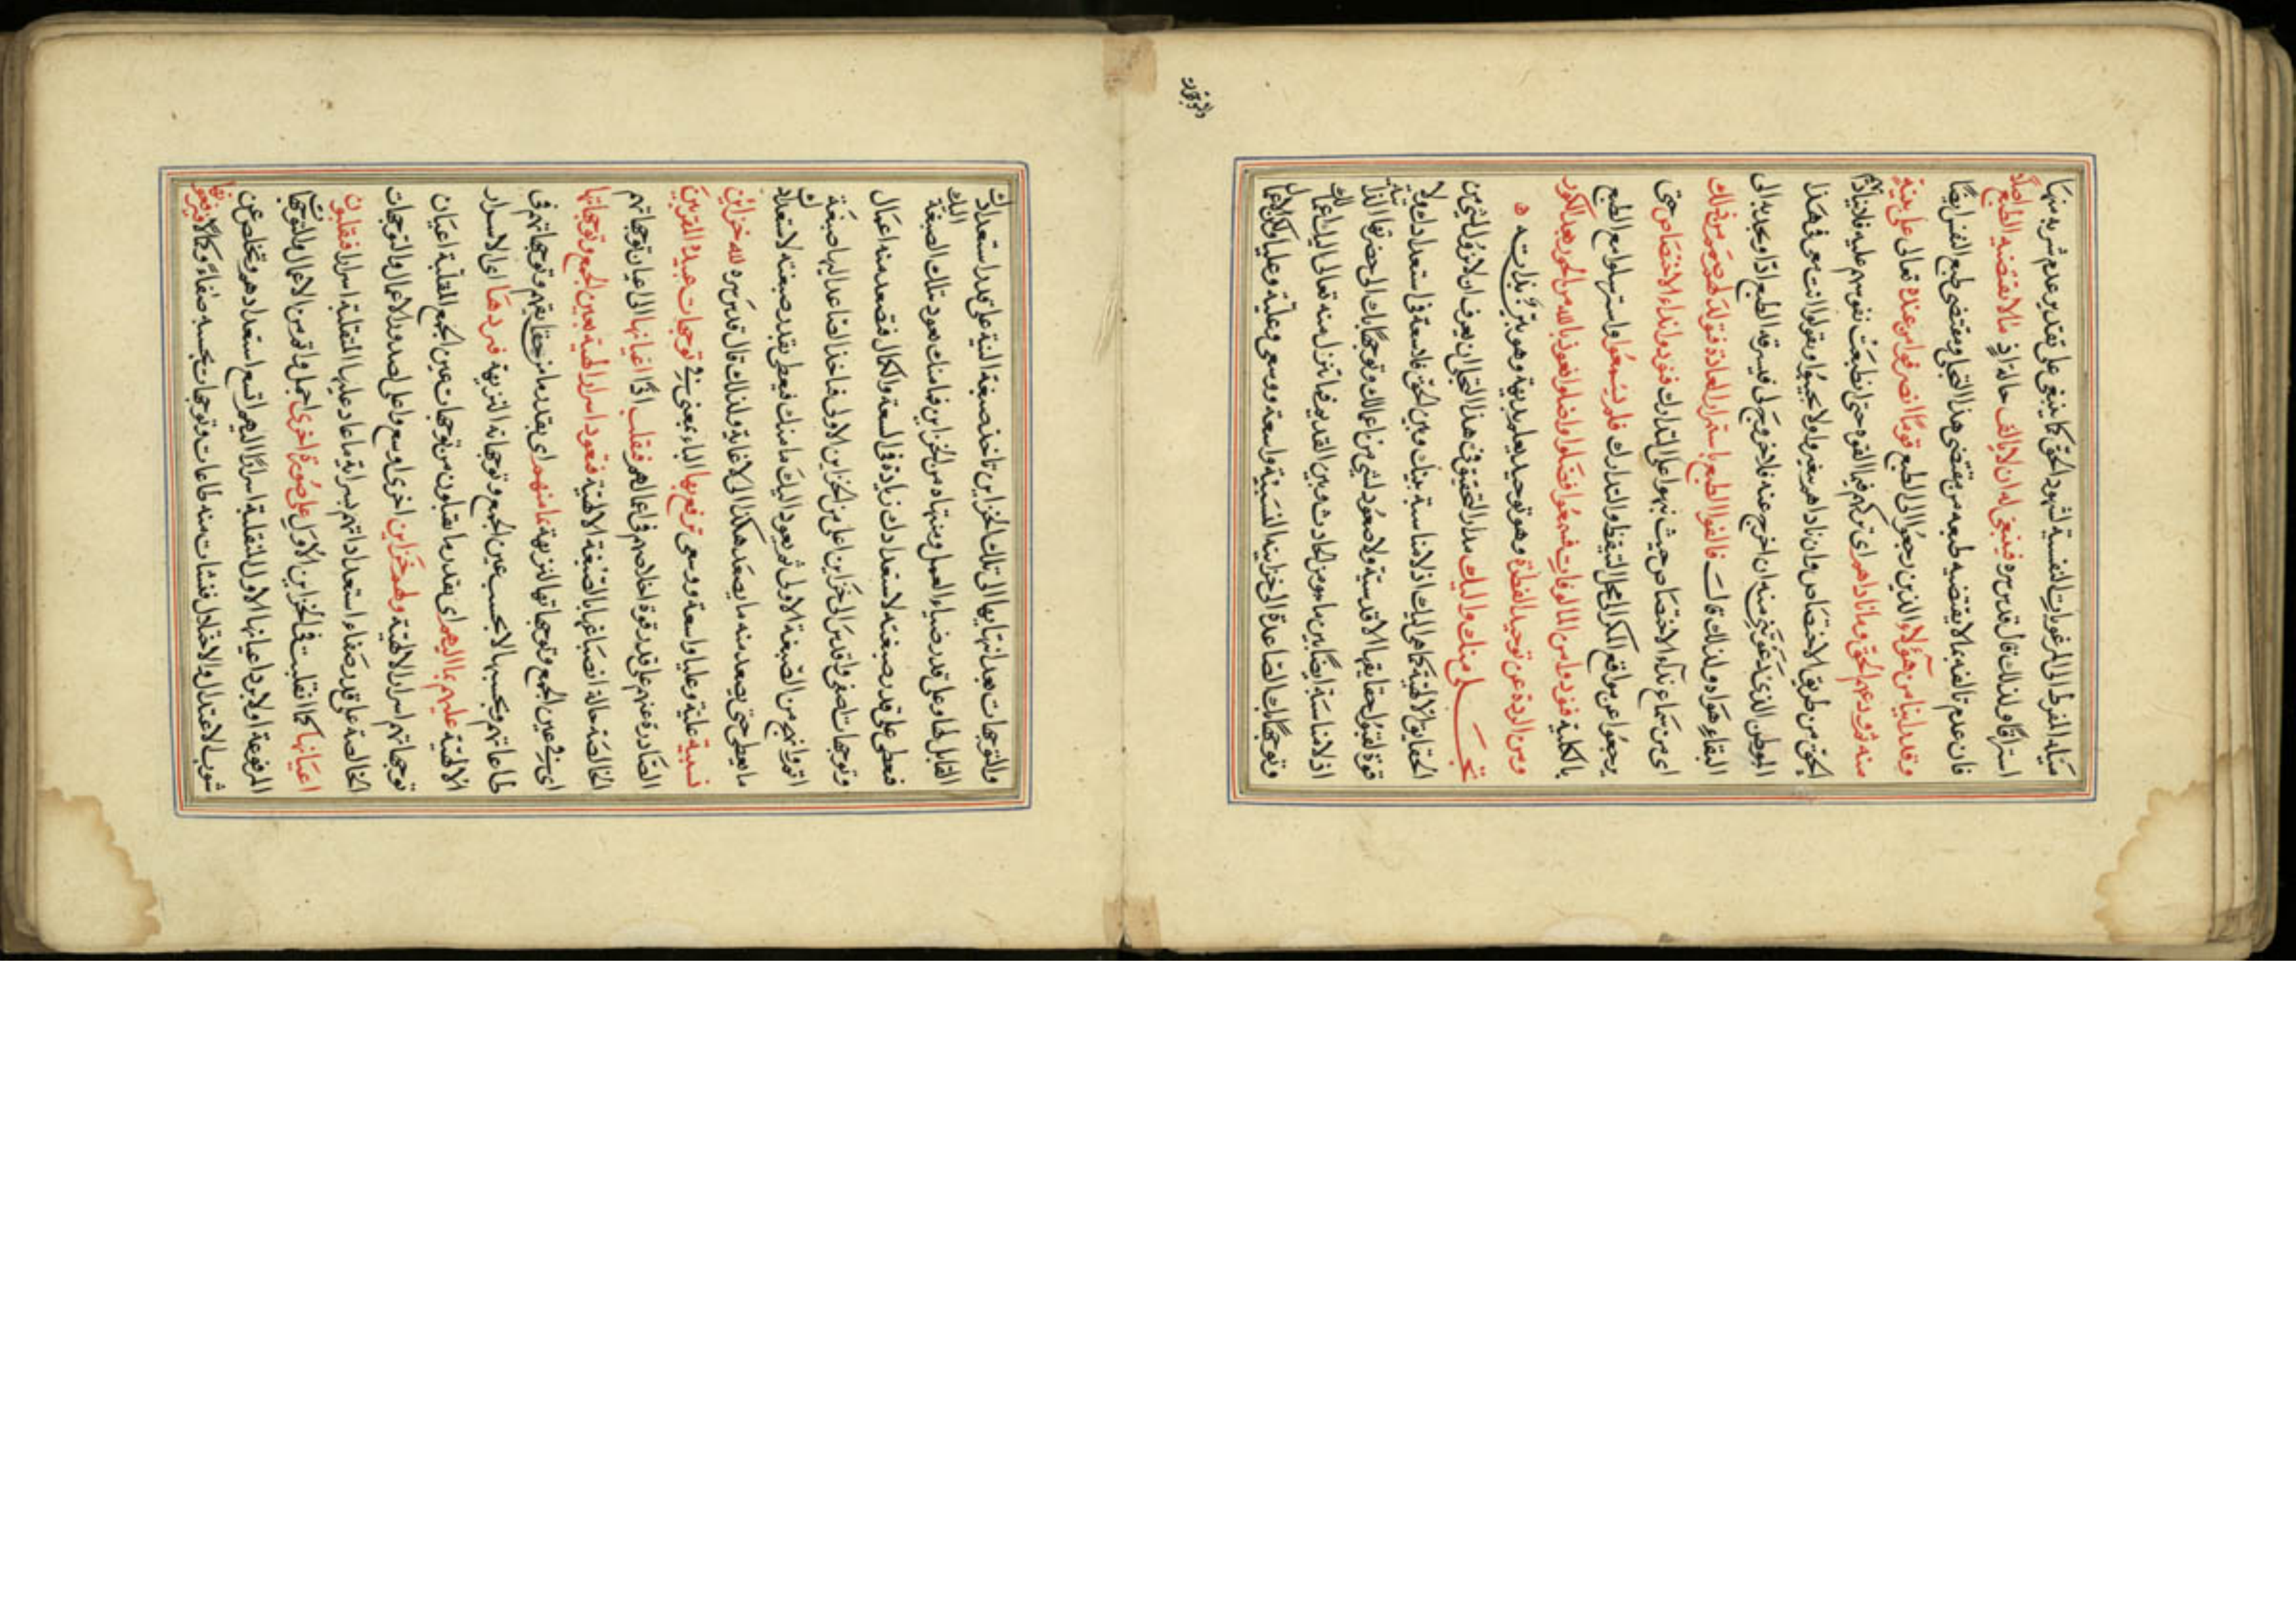 ميله المفرط الى المرغوبات النفسية لشهود الحق كما ينبغى على تقدير عدم شربه منها
استراقا ولذلك قال قدس سره فينبغى له ان لا يالف حالة اذٍ مما لا يقتضيه الطبع اصلا
فان عدم تالفه بما لا يقتضيه طبعه من مقتضى هذا التجلى ومقتضى طبع النفس ايضا
وقد راينا من هؤلاء الذين رجعوا الى الطبع قوما انصرفوا من عنده تعالى على بينة
منه ثم ودعهم الحق وما ناداهم اى تركهم فيما القوه حتى انطبعت نفوسهم عليه فلا يناديهم
الحق من طريق الاختصاص وان ناداهم بغيره لا يجيبوا ويقولوا انت معى فى هذا
الموطن الذى تدعونى منه ان اخرج عنه فلا خروج لى فيسرقه الطبع اذا ويجذبه الى
البقاء هواه ولذلك قال فالفوا الطبع باستمرار العادة فتولد لهم صمم من ذلك
اى من سماع نداء الاختصاص حيث نبهوا على التدارك فنودوا نداء الاختصاص حتى
يرجعوا عن مواقع المكر الى محل التيقظ والتدارك فلم يسمعوا واستهلوا مع الطبع
بالكلية فنودوا من المالوفات فسمعوا فضلوا واضلوا نعوذ بالله من الحور بعد الكور
ومن الردة عن توحيد الفطرة وهو توحيد يعلم بديهة وهو بتركُّ بذاته ه
تجلى منك واليك مدار التحقيق فى هذا التجلى ان يعرف ان لا نزول لشئ من
الحقايق الالهية كما هى اليك اذ لا مناسبة بينك وبين الحق فلا سعة فى استعدادك ولا
قوة لقبول حقايقها الاقدسية ولا صعود لشئ من اعمالك وتوجهاتك الى حضرتها الذاتية
اذ لا مناسبة ايضا بين ما هو من الحادث وبين القديم فما تنزل منه تعالى اليك اعمالك
وتوجهاتك الصاعدة الى خزاينه النسبية واسعة ووسعى وعلية وعليا لكن الاعمال
والتوجهات بعد انتهايها الى تلك الخزاين تاخذ صبغة النية على قدر استعدادك
القابل لها وعلى قدر ضياء العمل ومنتهاه من الخزاين فما منك تعود بتلك الصبغة اليك
فتعطى على قدر صبغته لاستعدادك زيادة فى السعة والكمال فتصعد منه اعمال
وتوجهات اصفى واقدس الى خزاين اعلى من الخزاين الاولى فياخذ الصاعد اليها صبغة
اتم وابهج من الصبغة الاولى ثم يعود اليك ما منك فيعطى بقدر صبغته لاستعدادك
ما يعطى حتى يصعد منه ما يصعد هكذا الى لا غاية ولذلك قال قدس سره لله خزاين
نسبية علية وعليا واسعة ووسعى ترفع بها الباء بمعنى فى توجهات عبيده المقربين
الصادرة عنهم على قدر قوة اخلاصهم فى اعمالهم فتقلب اذًا اعيانها الى اعيان توجهاتهم
الخالصة حالة انصباغها بالصبغة الالهية فتعود اسرار الهية بعين الجمع وتوجهاتها
اى فى عين الجمع وتوجهاتها النزيهة بما منهم اى بقدر ما من حقايقهم وتوجهاتهم فى
طاعاتهم وبحسبها لا بحسب عين الجمع وتوجهاته النزيهة فيردها اى الاسرار
الالهية عليهم بما اليهم اى بقدر ما يقبلون من توجهات عين الجمع المقلبة اعيان
توجهاتهم اسرار الالهية ولهم خزاين اخرى اوسع واعلى لصدور الاعمال والتوجهات
الخالصة على قدر صفاء استعداداتهم بسراية ما عاد عليها المنقلبة اسرارا فتقلبون
اعيانها كما انقلبت فى الخزاين الاول على صورة اخرى اجمل واتم من الاعمال والتوجهات
المرفوعة اولا برد اعيانها الاول المنقلبة اسرارًا اليهم اتسع استعدادهم وتخلص عن
شوب الاعتدال والاختلال فنشات منه طاعات وتوجهات بحسبه صفاءً وكمالا فيرفعونها